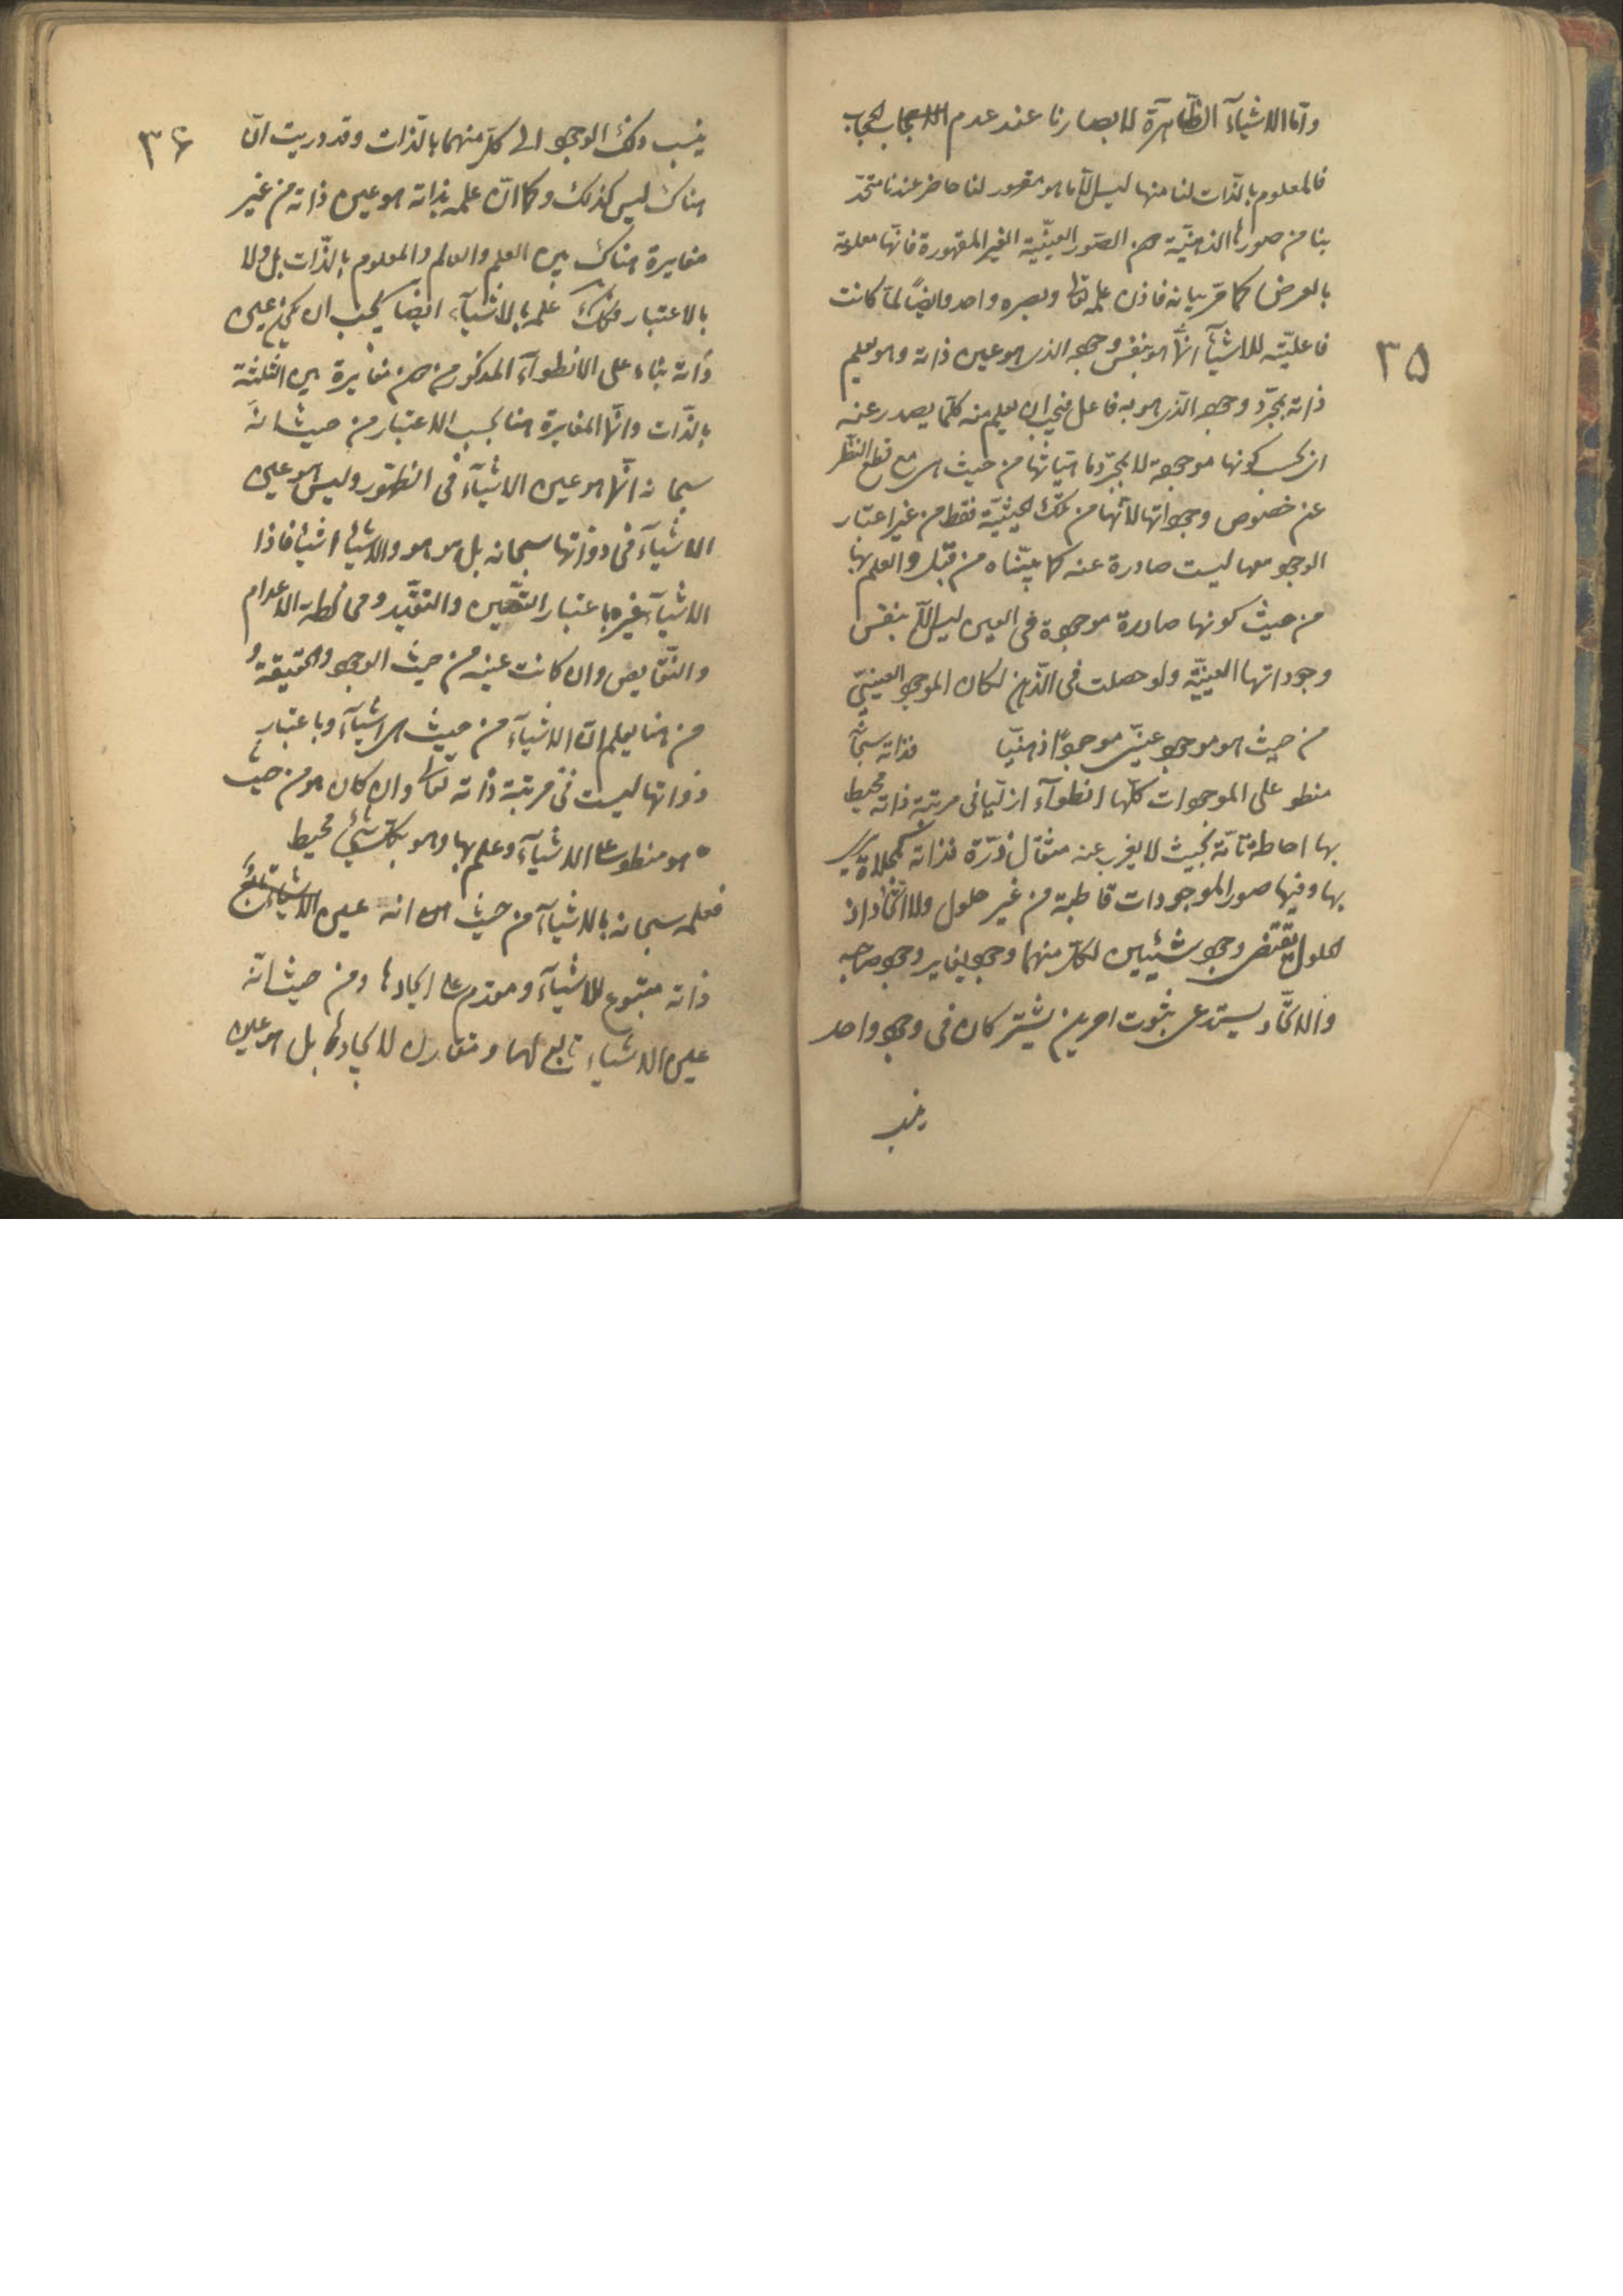 وأمّا الاشيآء الظّاهرة لابصارنا عند عدم الحجاب
فالمعلوم بالذّات لنا منها ليس الّا ما هو مقهور لنا حاضر عندنا متّحد
بنا من صورها الذهنيّة دون الصّور العينيّة الغير المقهورة فانّها معلومة
بالعرض كما مرّ بيانه فاذن علمه تعا وبصره واحد وايضًا لمّا كانت
٣٥
فاعليّته للاشيآء انّما هو بنفس وجوده الذى هو عين ذاته وهو يعلم
ذاته بمجرّد وجوده الّذى هو به فاعل فيجب ان يعلم منه كلّما يصدر عنه
اى بحسب كونها موجودة لا بمجرّد ماهيّاتها من حيث هى مع قطع النّظر
عن خصوص وجوداتها لانّها من تلك الحيثيّة فقط من غير اعتبار
الوجود معها ليست صادرة عنه كما بيّنّاه من قبل والعلم بها
من حيث كونها صادرة موجودة فى العين ليس الّا بنفس
وجوداتها العينيّة ولو حصلت فى الذّهن لكان الموجود العينىّ
من حيث هو موجود عينىّ موجودًا ذهنيّا فذاته سبحانه
منطو على الموجودات كلّها انطوآء ازليّا فى مرتبة ذاته محيط
بها احاطة تامّة بحيث لا يعزب عنه مثقال ذرّة فذاته كمجلاة يرى
بها وفيها صور الموجودات قاطبة من غير حلول ولا اتّحاد اذ
الحلول يقتضى وجود شيئين لكلّ منهما وجود يغاير وجود صاحبه
والاتّحاد يستدعى ثبوت امرين يشتركان فى وجود واحد
ينسب
٣۶
ينسب ذلك الوجود الى كلّ منهما بالذّات وقد دريت انّ
هناك ليس كذلك وكما انّ علمه بذاته هو عين ذاته من غير
مغايرة هناك بين العلم والعالم والمعلوم بالذّات بل ولا
بالاعتبار فكذلك علمه بالاشيآء ايضًا يجب ان يكون عين
ذاته بناء على الانطوآء المذكور من دون مغايرة بين الثلثة
بالذّات وانّما المغايرة هنا بحسب الاعتبار من حيث انّه
سبحانه انّما هو عين الاشيآء فى الظهور وليس هو عين
الاشيآء فى ذواتها سبحانه بل هو هو والاشيآء اشيآء فاذا
الاشيآء غيره باعتبار التّعيّن والتقيّد ومخالطة الاعدام
والنّقايص وان كانت عينه من حيث الوجود والحقيقة و
من هنا يعلم انّ الاشيآء من حيث هى اشيآء وباعتبار
ذواتها ليست فى مرتبة ذاته تعا وان كان هو من حيث
هو منطو على الاشيآء وعلم بها وهو بكلّ شئ محيط
فعلمه سبحانه بالاشيآء من حيث انه عين
ذاته متبوع للاشيآء ومقدم على ايجادها ومن حيث انّه
عين الاشياء تابع لها ومقارن لايجادها بل هو عين